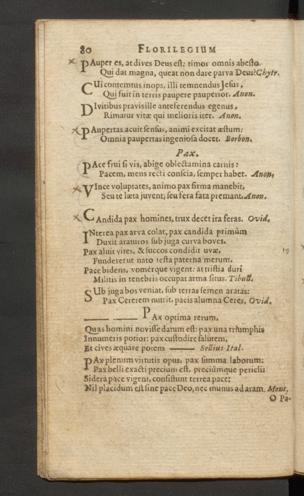 80 FLORILEGIUM
PAuper es, at dives Deus est: timor omnis abesto.
Qui dat magna, queat non dare parva Deus? Chytr.
CUi contemtus inops, illi temnendus Jesus,
Qui fuit in terris paupere pauperior. Anon.
DIvitibus pravis ille anteferendus egenus,
Rimatur vitæ qui meliora iter. Anon.
PAupertas acuit sensus, animi excitat æstum:
Omnia paupertas ingeniosa docet. Borbon.
Pax.
PAce frui si vis, abige oblectamina carnis:
Pacem, mens recti conscia, semper habet. Anon.
VInce voluptates, animo pax firma manebit,
Seu te læta juvent, seu fera fata premant. Anon.
CAndida pax homines, trux decet ira feras. Ovid.
INterea pax arva colat, pax candida primùm
Duxit araturos sub juga curva boves.
Pax aluit vites, & succos condidit uvæ,
Funderet ut nato testa paterna merum.
Pace bidens, vomérque vigent: at tristia duri
Militis in tenebris occupat arma situs. Tibull.
SUb juga bos veniat, sub terras semen aratas:
Pax Cererem nutrit, pacis alumna Ceres. Ovid.
PAx optima rerum,
Quas homini novisse datum est: pax una triumphis
Innumeris potior: pax custodire salutem,
Et cives æquare potens Sillius Ital.
PAx plenum virtutis opus, pax summa laborum:
Pax belli exacti precium est, preciúmque pericli:
Sidera pace vigent, consistunt terrea pace:
Nil placidum est sine pace Deo, nec munus ad aram. Ment.
O Pa-